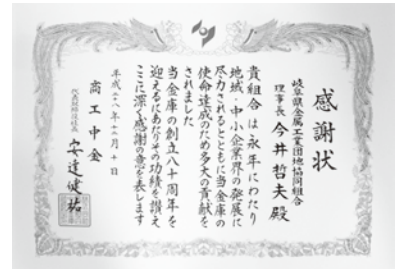 感謝状
岐阜県金属工業団地協同組合
理事長 今井哲夫殿
貴組合は永年にわたり
地域・中小企業界の発展に
尽力されるとともに当金庫の
使命達成のため多大の貢献を
されました
当金庫の創立八十周年を
迎えるにあたりその功績を讃え
ここに深く感謝の意を表します
平成二十八年十二月十日
商工中金
代表取締役社長 安達健祐